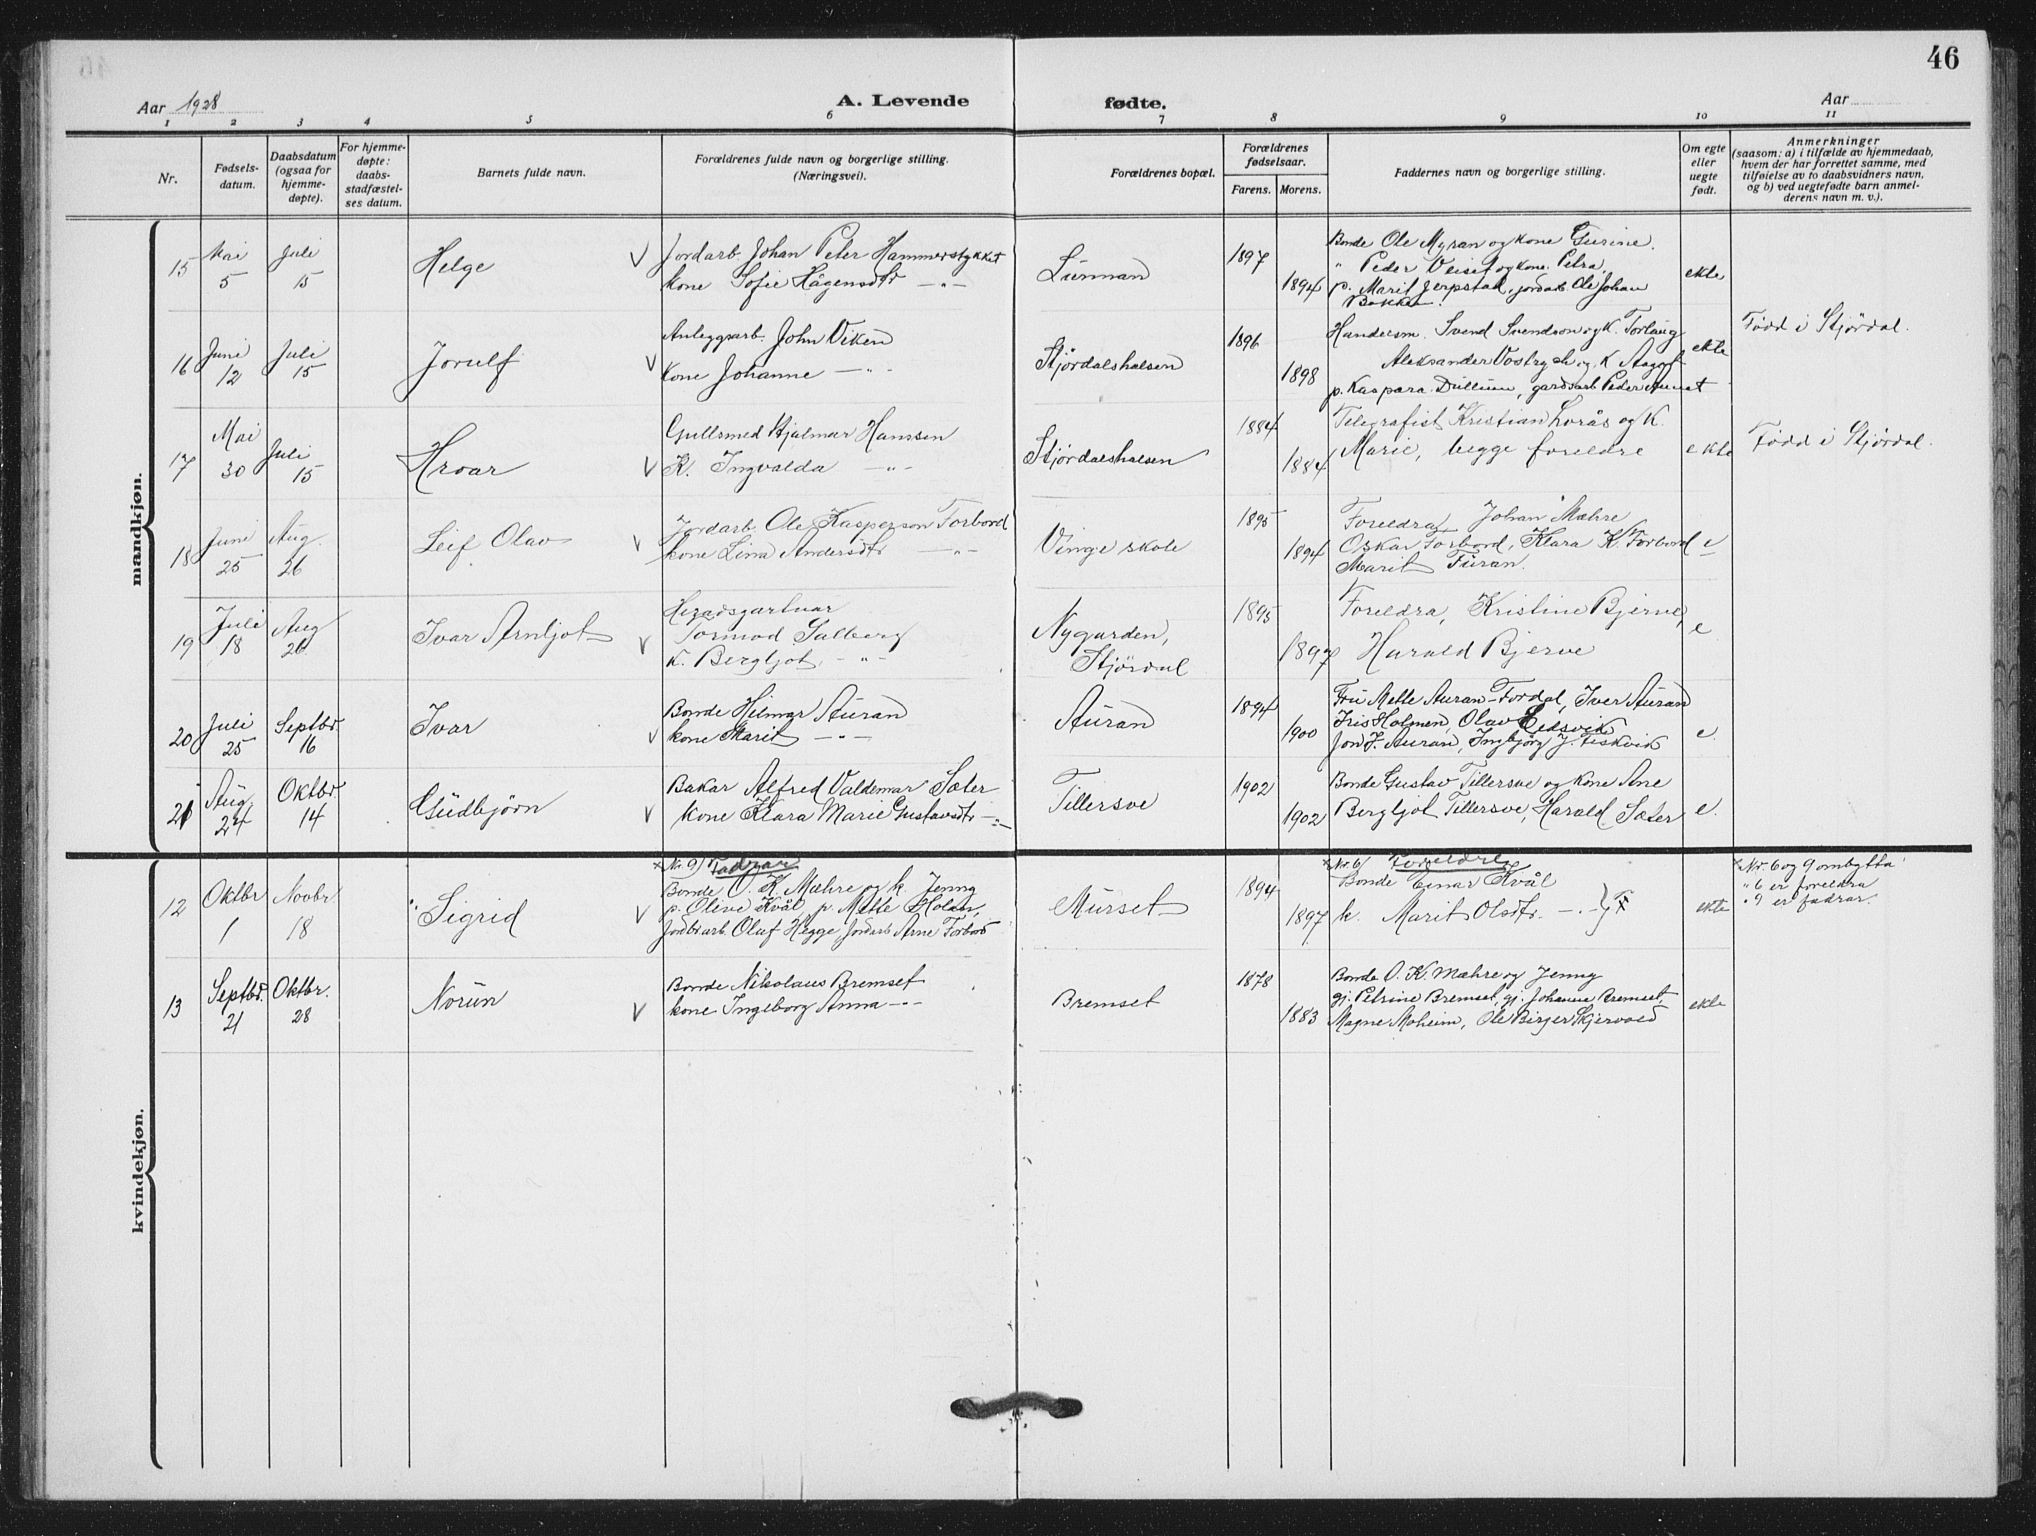 46
Aar 1928
A. Levende fødte.
Aar
1 2 3 4 5 6 7 8 9 10 11
Nr.
Fødsels-
datum.
Daabsdatum
(ogsaa for
hjemme-
døpte).
For hjemme-
døpte:
daabs-
stadfæstel-
ses datum.
Barnets fulde navn.
Forældrenes fulde navn og borgerlige stilling.
(Næringsvei).
Forældrenes bopæl.
Forældrenes
fødselsaar.
Farens. Morens.
Faddernes navn og borgerlige stilling.
Om egte
eller
uegte
født.
Anmerkninger
(saasom: a) i tilfælde av hjemmedaab,
hvem der har forrettet samme, med
tilføielse av to daabsvidners navn,
og b) ved uegtefødte barn anmel-
derens navn m. v.).
mandkjøn.
15
Mai
5
Juli
15
Helge
Jordarb. Johan Peter Hammerstykket
kone Sofie Hågensdtr —"—
Lunman
1897
1894
Bonde Ole Myran og kone Gurine.
" Peder Veiset og kone Petra.
p. Marit Jerpstad, jordarb Ole Johan
Bakken.
ekte
16
Juni
12
Juli
15
Jorulf
Anleggsarb. John Viken
kone Johanne —"—
Stjørdalshalsen
1896
1898
Handelsm. Svend Svendson og K. Torlaug
Aleksander Vostryeh og K Aagot
p. Kaspara Dullum, gardsarb Peder Aunet
ekte
Född i Stjördal.
17
Mai
30
Juli
15
Hroar
Gullsmed Hjalmar Hanssen
K. Ingvalda —"—
Stjördalshalsen
1884
1884
Telegrafist Kristian Lorås og K.
Marie, begge foreldre
ekte
Född i Stjördal.
18
Juni
25
Aug.
26
Leif Olav
Jordarb Ole Kasperson Forbord
kone Lina Andersdtr —"—
Vinge skole
1895
1894
Foreldra, Johan Mæhre
Oskar Forbord, Klara K. Forbord
Marit Furan.
e
19
Juli
18
Aug
26
Ivar Arnljot
Heradsgartnar
Tormod Salberg
K. Bergljot —"—
Nygarden,
Stjördal
1895
1897
Foreldra, Kristine Bjerve,
Harald Bjerve
e
20
Juli
25
Septbr.
16
Ivar
Bonde Hilmar Auran
kone Marit —"—
Auran
1894
1900
Fru Mette Auran-Fordal, Iver Auran
Iris Holmen, Olav Eidsvik
Jon J. Auran, Ingbjörg J. Fiskvik
e.
21
Aug.
24
Oktbr.
14
Gudbjørn
Bakar Alfred Valdemar Sæter
kone Klara Marie Gustavsdtr —"—
Tillersve
1902
1902
Bonde Gustav Tillersve og kone Ane
Bergljot Tillersve, Harald Sæter
e.
kvindekjøn.
12
Oktbr
1
Novbr
18
Sigrid
× Nr. 9) Fadrar
Bonde O. K. Mæhre og k. Jenny
p. Oline Kvål p. Mette Holan,
Jordbrarb. Oluf Hegge Jordarb Arne Forbord
Murset
1894
1897
× Nr. 6) Foreldre
Bonde Einar Kvål
k. Marit Olsdtr. —"—
ekte
× Nr 6 og 9 ombytta
" 6 er foreldra
" 9 er fadrar.
13
Septbr.
21
Oktbr.
28
Norun
Bonde Nikolaus Bremset
kone Ingeborg Anna —"—
Bremset
1878
1883
Bonde O. K. Mæhre og Jenny
gj. Petrine Bremset, gj. Johanne Bremset,
Magne Moheim, Ole Birger Skjervold
ekte